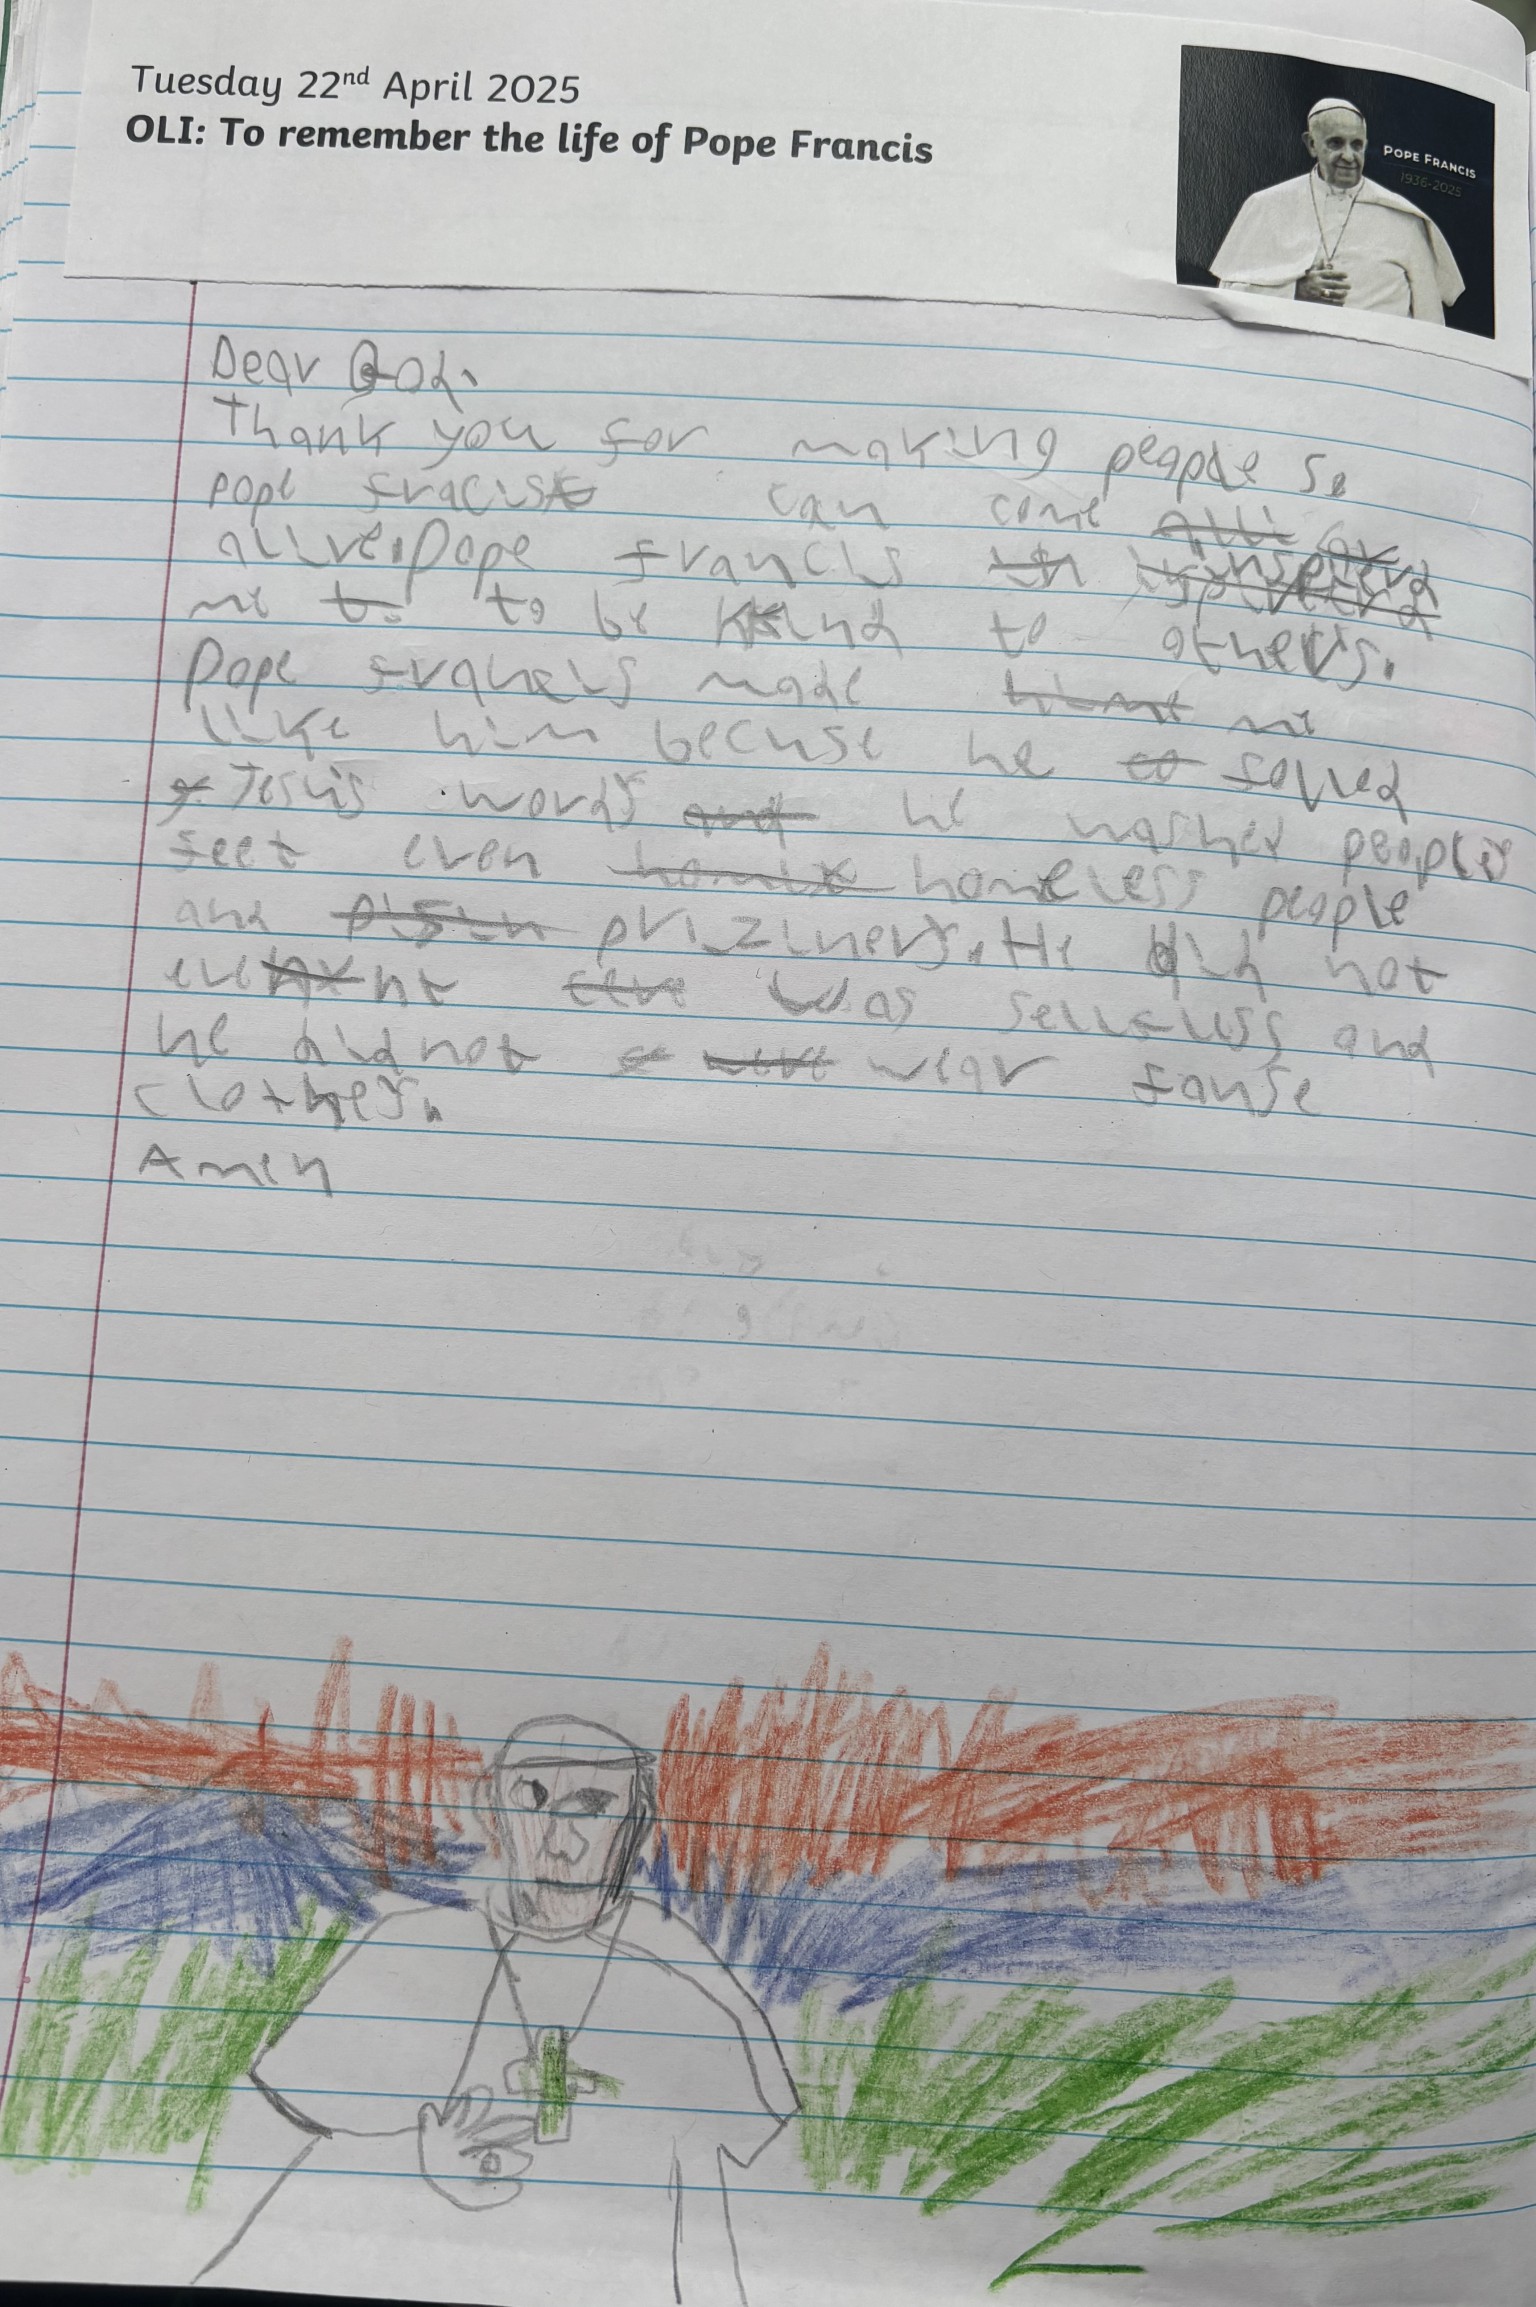 Tuesday 22nd April 2025
OLI: To remember the life of Pope Francis
POPE FRANCIS
1936-2025
Dear God.
Thank you for making people so
pope fracis can come
alive. Pope francis inspierd
me to be kind to others.
Pope franeis made me
like him becuse he folled
Jesus words he washed peoples
feet even homeless people
and priziners. He did not
was selfless and
he did not wear fanse
clothes.
Amen